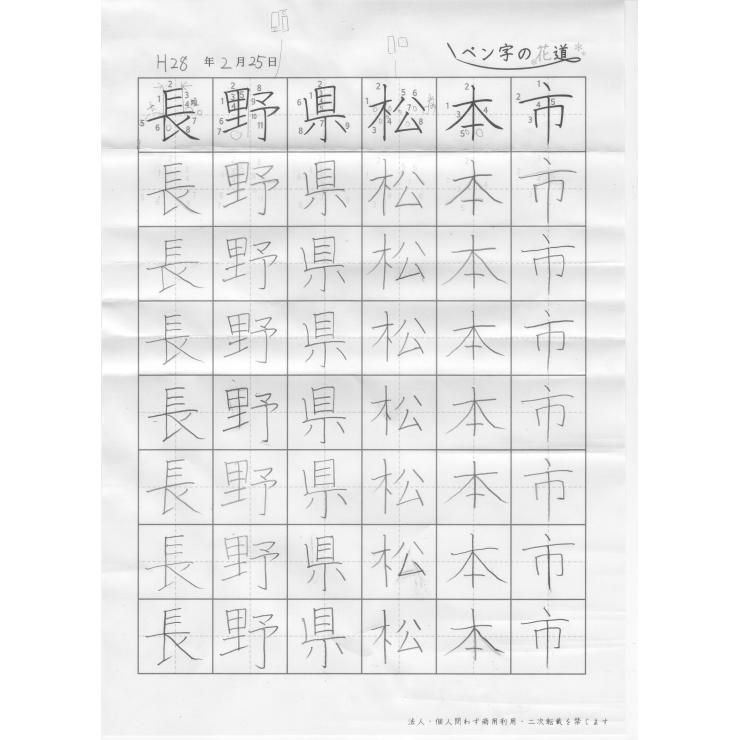 H28 年 2月25日 ペン字の花道
長野県松本市
長野県松本市
長野県松本市
長野県松本市
長野県松本市
長野県松本市
長野県松本市
長野県松本市
法人・個人問わず商用利用・二次転載を禁じます